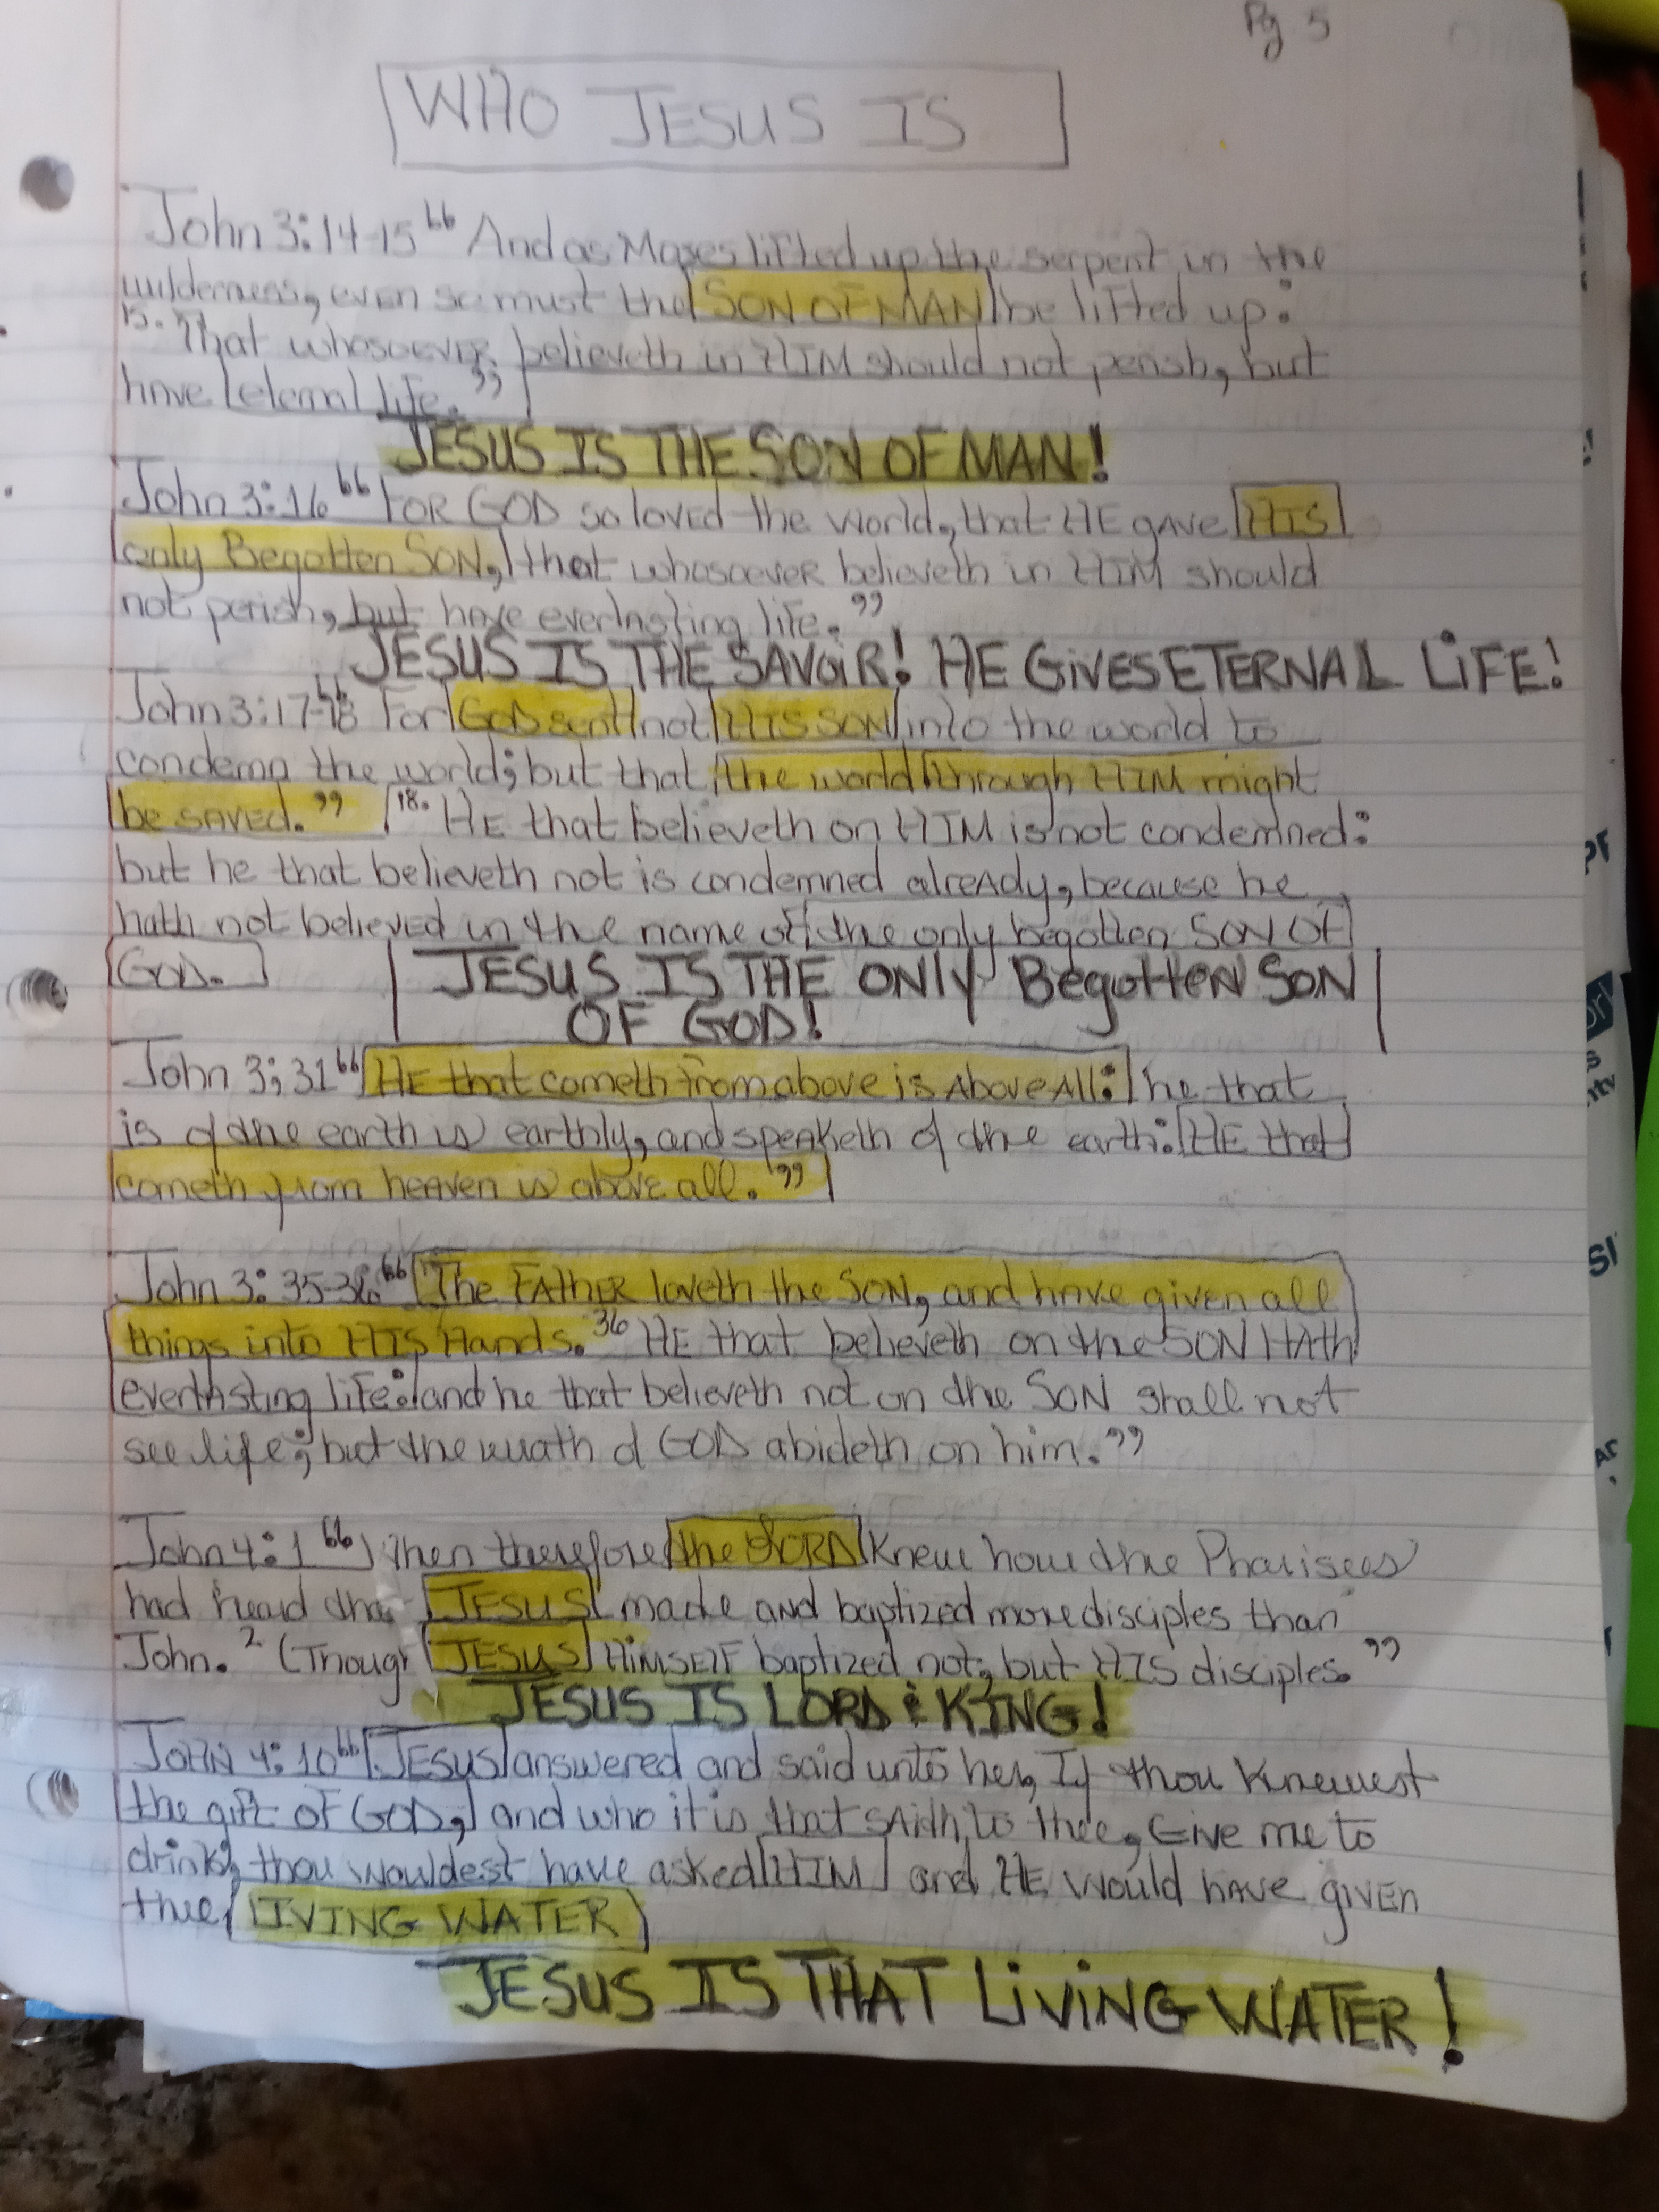 Pg. 5
WHO JESUS IS
John 3:14-15 "And as Moses lifted up the serpent in the
wilderness, even so must the SON OF MAN be lifted up:
15. That whosoever believeth in HIM should not perish, but
have eternal life."
JESUS IS THE SON OF MAN!
John 3:16 "FOR GOD so loved the world, that HE gave HIS
only Begotten SON, that whosoever believeth in HIM should
not perish, but have everlasting life."
JESUS IS THE SAVOIR! HE GIVES ETERNAL LIFE!
John 3:17-18 "For GOD sent not HIS SON into the world to
condemn the world; but that the world through HIM might
be SAVED." 18. HE that believeth on HIM is not condemned:
but he that believeth not is condemned already, because he
hath not believed in the name of the only begotten SON OF
GOD.
JESUS IS THE ONLY Begotten SON
OF GOD!
John 3:31 "HE that cometh from above is Above All: he that
is of the earth is earthly, and speaketh of the earth: HE that
cometh from heaven is above all."
John 3:35-36 "The FATHER loveth the SON, and have given all
things into HIS Hands. 36 HE that believeth on the SON HATH
everlasting life: and he that believeth not on the SON shall not
see life; but the wrath of GOD abideth on him."
John 4:1 "When therefore the LORD knew how the Pharisees
had heard tha JESUS made and baptized more disciples than
John. 2 (Though JESUS HIMSELF baptized not, but HIS disciples."
JESUS IS LORD & KING!
JOHN 4:10 "JESUS answered and said unto her, If thou knewest
the gift of GOD, and who it is that saith to thee, Give me to
drink; thou wouldest have asked HIM and HE would have given
thee LIVING WATER
JESUS IS THAT LIVING WATER!